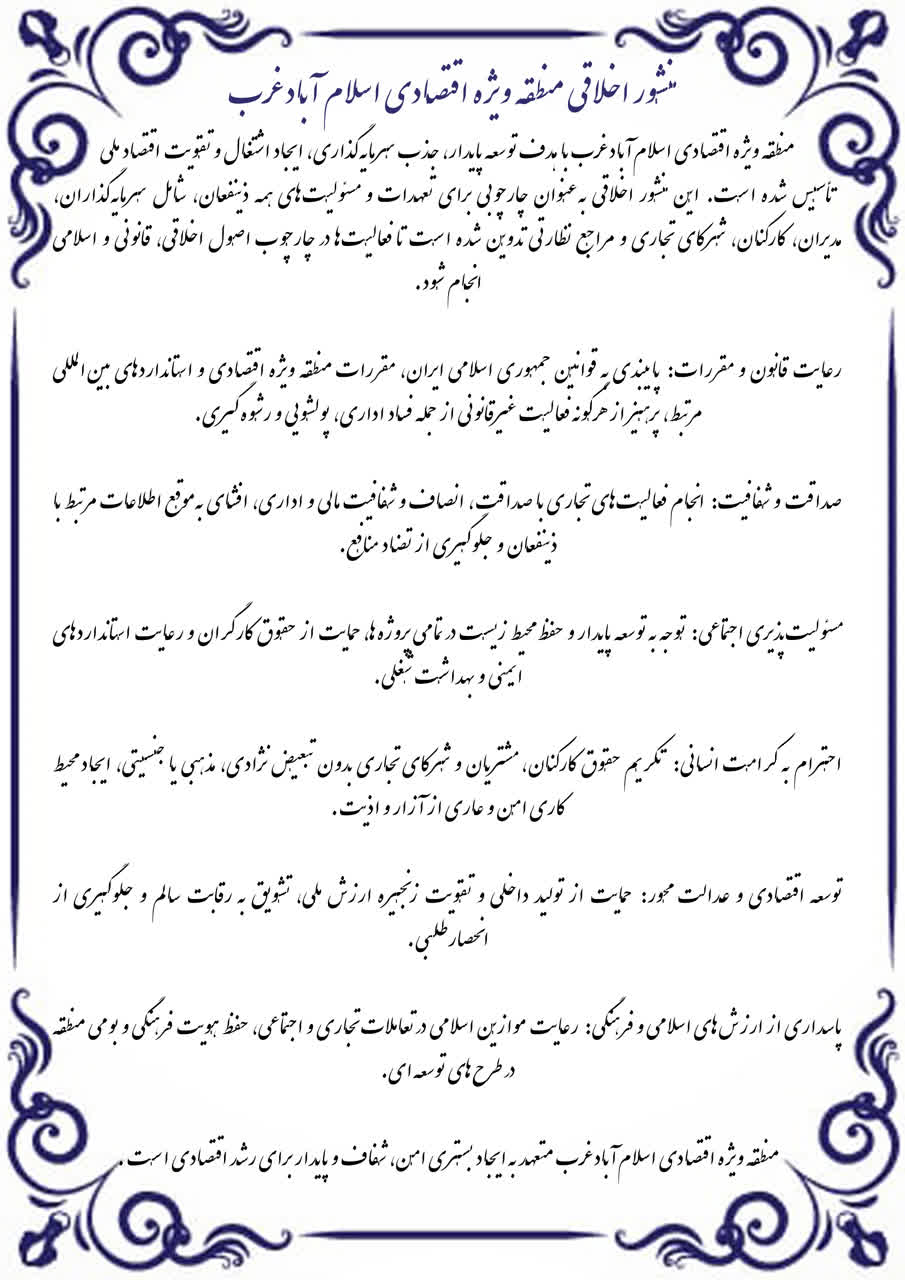 منشور اخلاقی منطقه ویژه اقتصادی اسلام آبادغرب
منطقه ویژه اقتصادی اسلام آبادغرب با هدف توسعه پایدار، جذب سرمایه‌گذاری، ایجاد اشتغال و تقویت اقتصاد ملی
تأسیس شده است. این منشور اخلاقی به‌عنوان چارچوبی برای تعهدات و مسئولیت‌های همه ذینفعان، شامل سرمایه‌گذاران،
مدیران، کارکنان، شرکای تجاری و مراجع نظارتی تدوین شده است تا فعالیت‌ها در چارچوب اصول اخلاقی، قانونی و اسلامی
انجام شود.
رعایت قانون و مقررات: پایبندی به قوانین جمهوری اسلامی ایران، مقررات منطقه ویژه اقتصادی و استانداردهای بین‌المللی
مرتبط، پرهیز از هرگونه فعالیت غیرقانونی از جمله فساد اداری، پولشویی و رشوه‌گیری.
صداقت و شفافیت: انجام فعالیت‌های تجاری با صداقت، انصاف و شفافیت مالی و اداری، افشای به‌موقع اطلاعات مرتبط با
ذینفعان و جلوگیری از تضاد منافع.
مسئولیت‌پذیری اجتماعی: توجه به توسعه پایدار و حفظ محیط زیست در تمامی پروژه ها، حمایت از حقوق کارگران و رعایت استانداردهای
ایمنی و بهداشت شغلی.
احترام به کرامت انسانی: تکریم حقوق کارکنان، مشتریان و شرکای تجاری بدون تبعیض نژادی، مذهبی یا جنسیتی، ایجاد محیط
کاری امن و عاری از آزار و اذیت.
توسعه اقتصادی و عدالت محور: حمایت از تولید داخلی و تقویت زنجیره ارزش ملی، تشویق به رقابت سالم و جلوگیری از
انحصارطلبی.
پاسداری از ارزش‌های اسلامی و فرهنگی: رعایت موازین اسلامی در تعاملات تجاری و اجتماعی، حفظ هویت فرهنگی و بومی منطقه
در طرح های توسعه ای.
منطقه ویژه اقتصادی اسلام آبادغرب متعهد به ایجاد بستری امن، شفاف و پایدار برای رشد اقتصادی است .